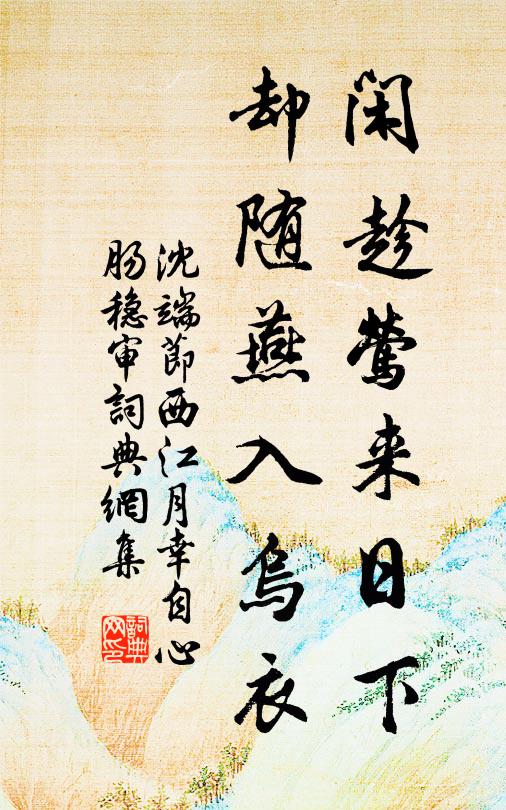 闲趁莺来日下
却随燕入乌衣
沈端节西江月幸自心
肠稳审詞典網集
詞典网印